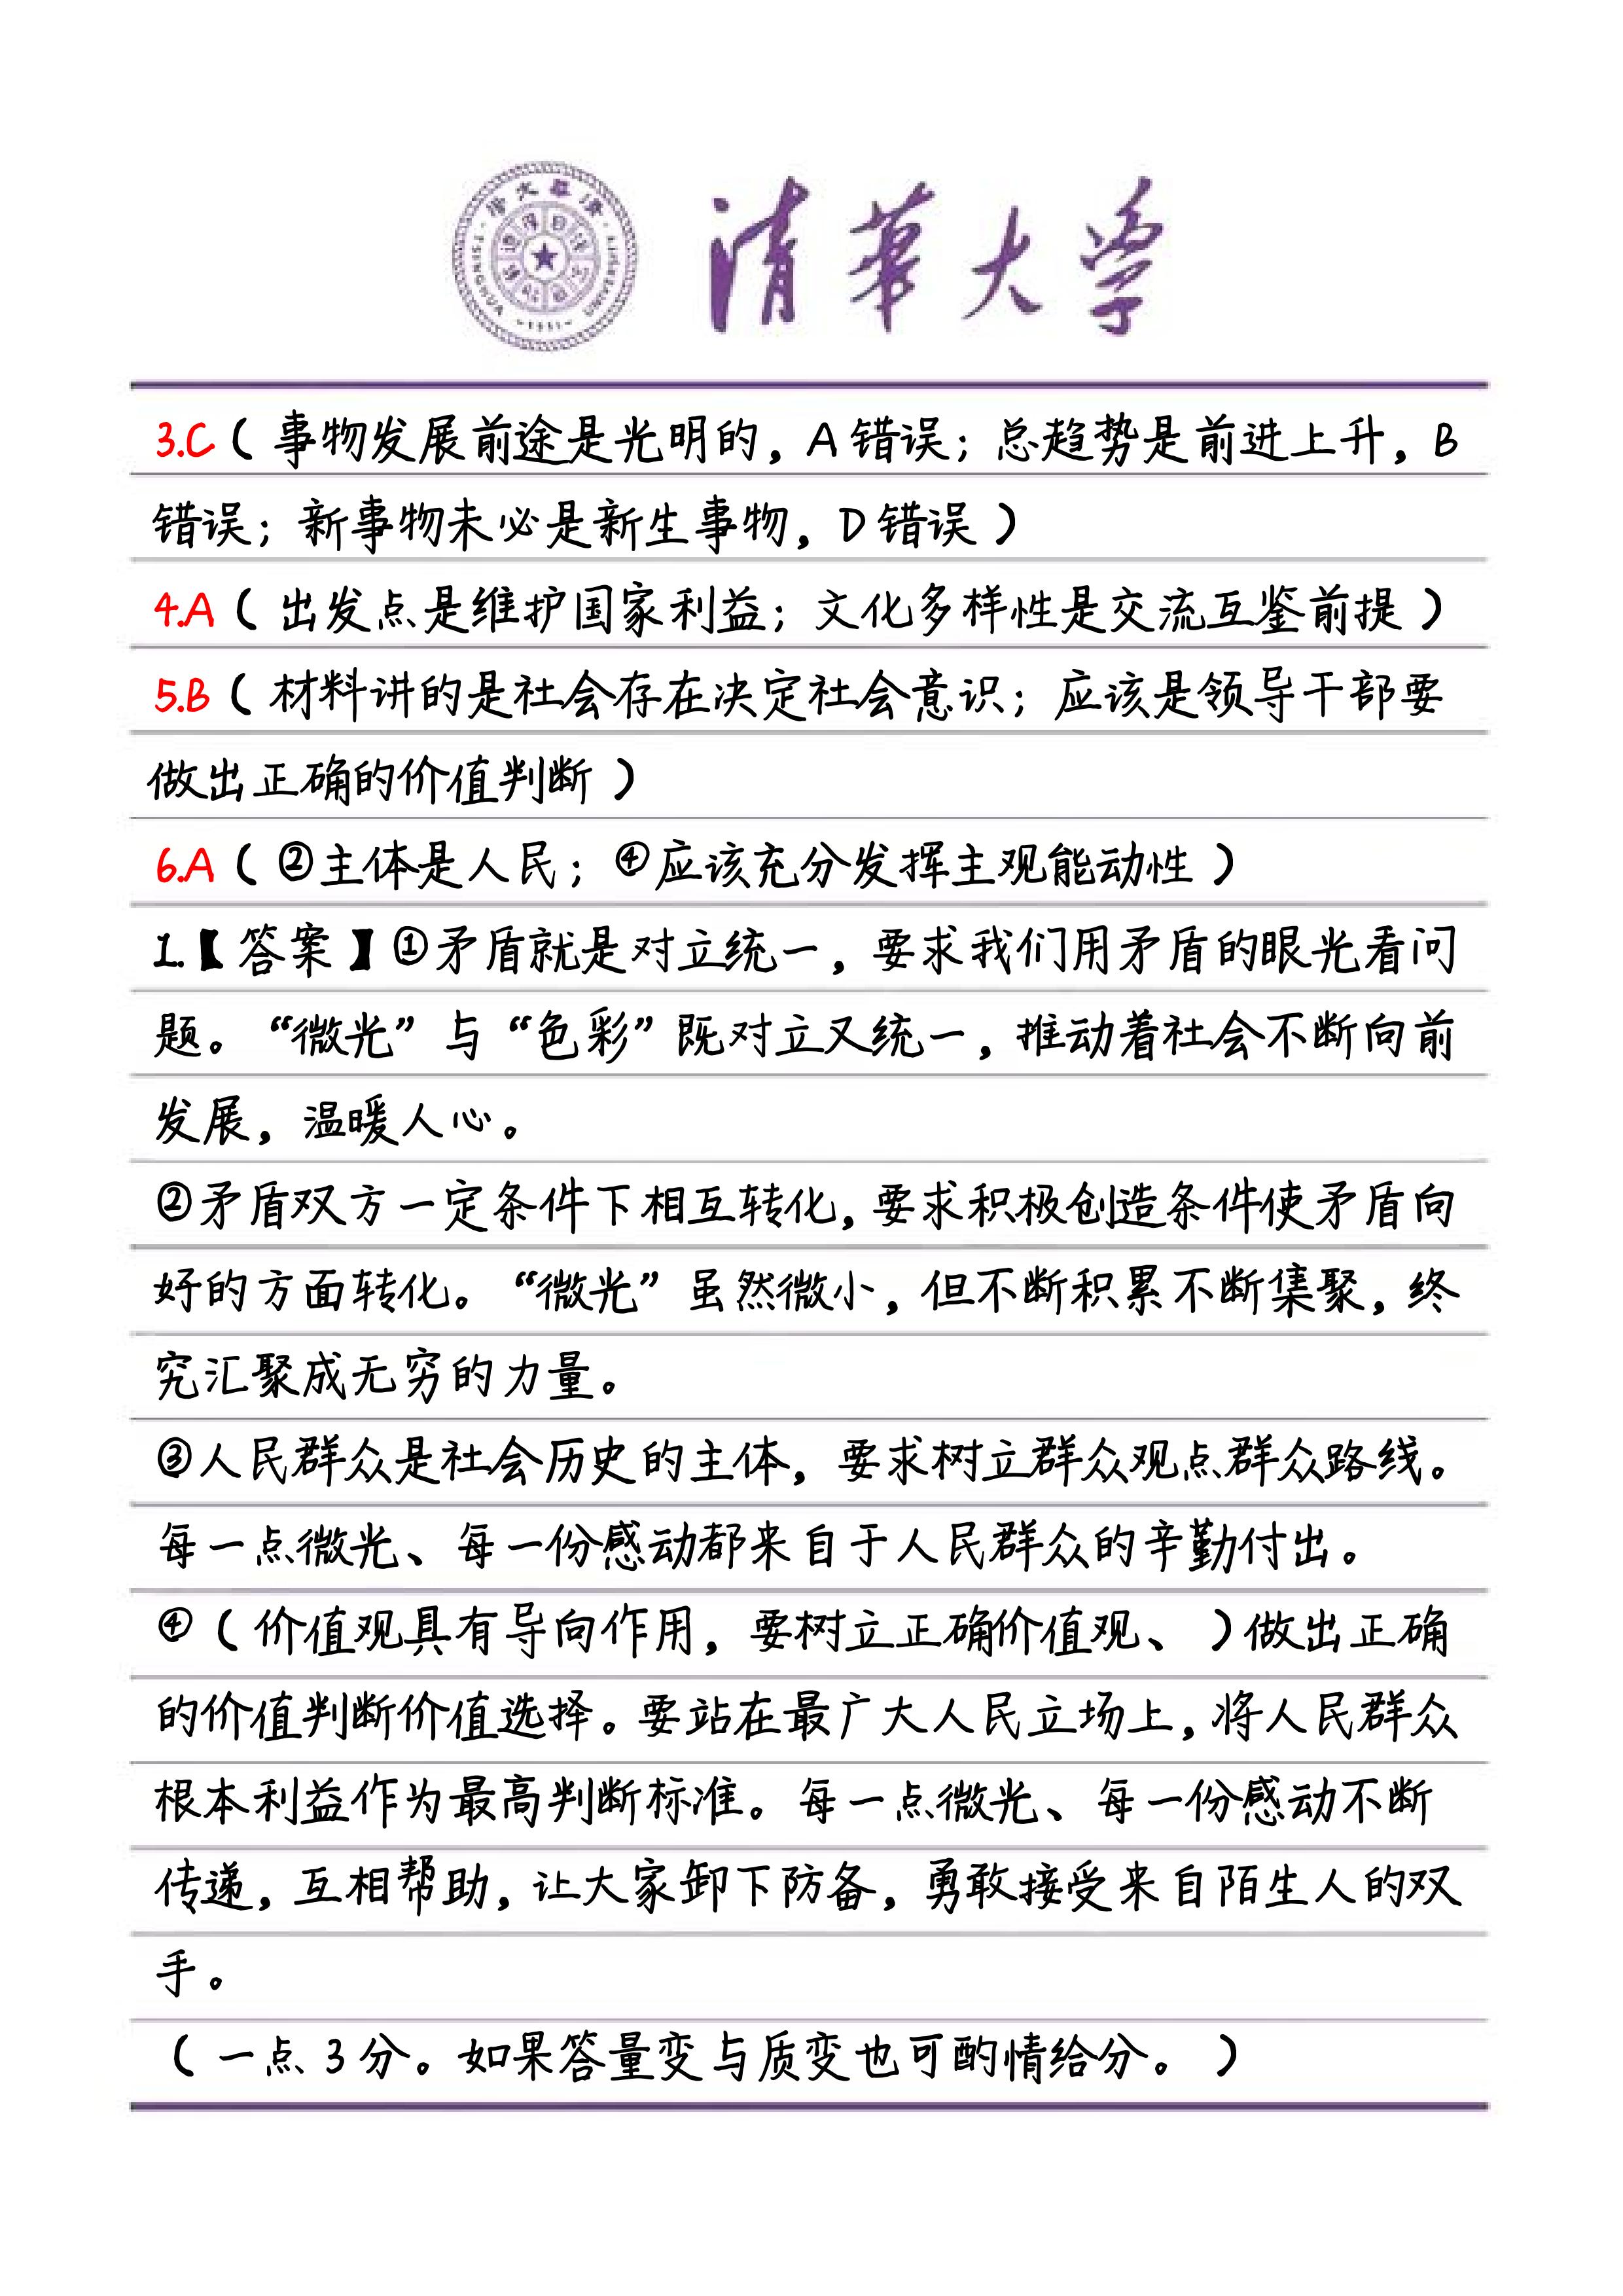 清華大学
TSINGHUA UNIVERSITY
-1911-
3.C（事物发展前途是光明的，A错误；总趋势是前进上升，B
错误；新事物未必是新生事物，D错误）
4.A（出发点是维护国家利益；文化多样性是交流互鉴前提）
5.B（材料讲的是社会存在决定社会意识；应该是领导干部要
做出正确的价值判断）
6.A（②主体是人民；④应该充分发挥主观能动性）
1.【答案】①矛盾就是对立统一，要求我们用矛盾的眼光看问
题。“微光”与“色彩”既对立又统一，推动着社会不断向前
发展，温暖人心。
②矛盾双方一定条件下相互转化，要求积极创造条件使矛盾向
好的方面转化。“微光”虽然微小，但不断积累不断集聚，终
究汇聚成无穷的力量。
③人民群众是社会历史的主体，要求树立群众观点群众路线。
每一点微光、每一份感动都来自于人民群众的辛勤付出。
④（价值观具有导向作用，要树立正确价值观、）做出正确
的价值判断价值选择。要站在最广大人民立场上，将人民群众
根本利益作为最高判断标准。每一点微光、每一份感动不断
传递，互相帮助，让大家卸下防备，勇敢接受来自陌生人的双
手。
（一点3分。如果答量变与质变也可酌情给分。）